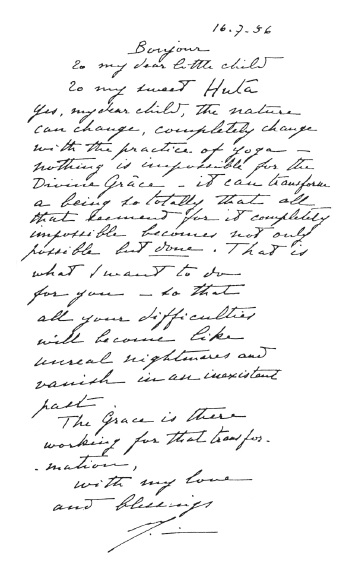 16-7-56
Bonjour
To my dear little child
To my sweet Huta
Yes, my dear child, the nature
can change, completely change
with the practice of yoga —
nothing is impossible for the
Divine Grâce — it can transform
a being so totally that all
that seemed for it completely
impossible becomes not only
possible but done. That is
what I want to do
for you — so that
all your difficulties
will become like
unreal nightmares and
vanish in an inexistant
past.
The Grace is there
working for that transfor-
-mation,
with my love
and blessings